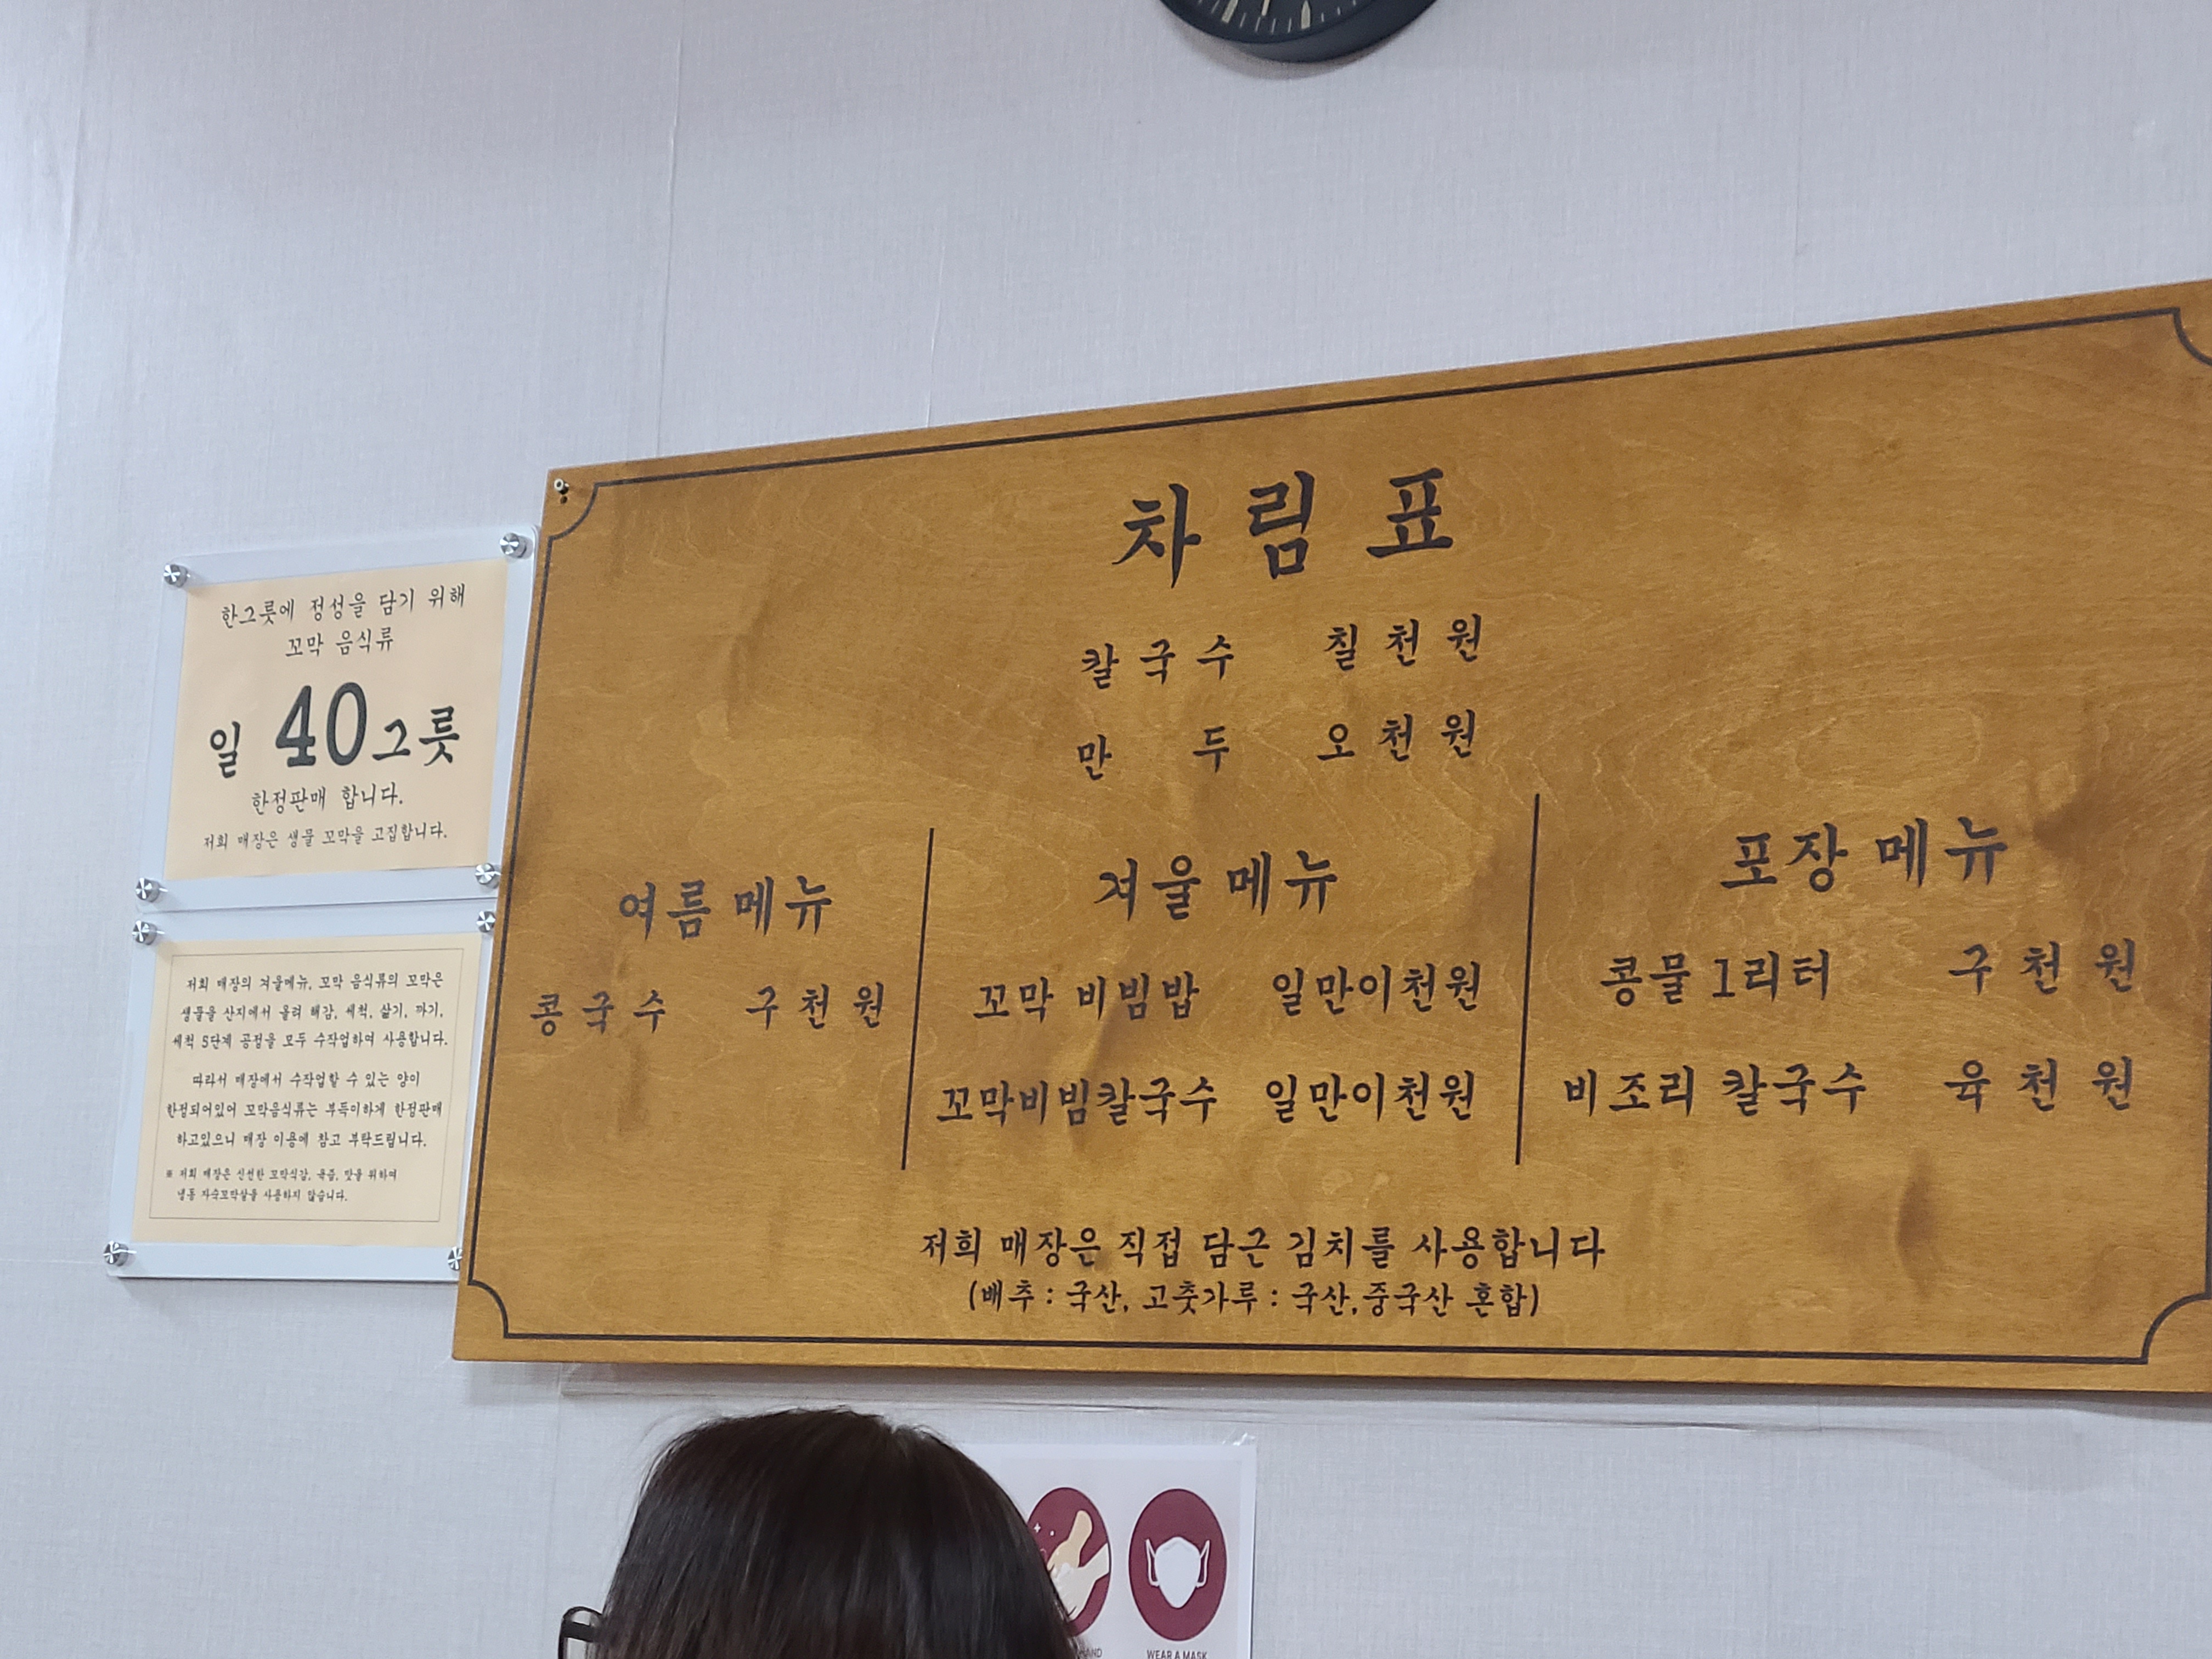 한그릇에 정성을 담기 위해
꼬막 음식류
일 40그릇
한정판매 합니다.
저희 매장은 생물 꼬막을 고집합니다.
저희 매장의 겨울메뉴, 꼬막 음식류의 꼬막은
생물을 산지에서 올려 해감, 세척, 삶기, 까기,
세척 5단계 공정을 모두 수작업하여 사용합니다.
따라서 매장에서 수작업할 수 있는 양이
한정되어있어 꼬막음식류는 부득이하게 한정판매
하고있으니 매장 이용에 참고 부탁드립니다.
※ 저희 매장은 신선한 꼬막식감, 육즙, 맛을 위하여
냉동 자숙꼬막살을 사용하지 않습니다.
차림표
칼국수 칠천원
만두 오천원
여름메뉴
콩국수 구천원
겨울메뉴
꼬막 비빔밥 일만이천원
꼬막비빔칼국수 일만이천원
포장메뉴
콩물 1리터 구천원
비조리 칼국수 육천원
저희 매장은 직접 담근 김치를 사용합니다
(배추 : 국산, 고춧가루 : 국산,중국산 혼합)
HAND
WEAR A MASK